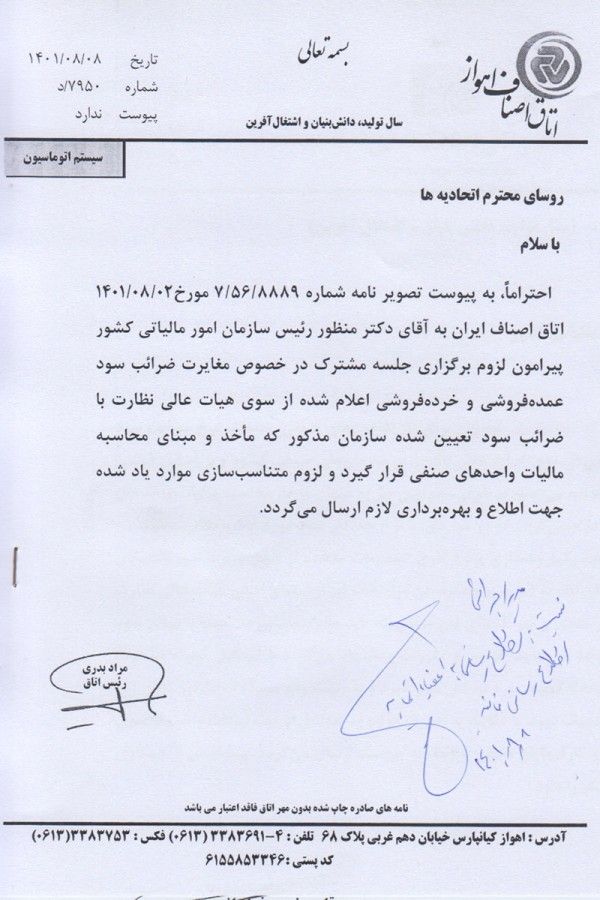 بسمه تعالی
اتاق اصناف اهواز
تاریخ ۱۴۰۱/۰۸/۰۸
شماره ۷۹۵۰/د
پیوست ندارد
سال تولید، دانش‌بنیان و اشتغال‌آفرین
سیستم اتوماسیون
روسای محترم اتحادیه ها
با سلام
احتراماً، به پیوست تصویر نامه شماره ۷/۵۶/۸۸۸۹ مورخ۱۴۰۱/۰۸/۰۲
اتاق اصناف ایران به آقای دکتر منظور رئیس سازمان امور مالیاتی کشور
پیرامون لزوم برگزاری جلسه مشترک در خصوص مغایرت ضرائب سود
عمده‌فروشی و خرده‌فروشی اعلام شده از سوی هیات عالی نظارت با
ضرائب سود تعیین شده سازمان مذکور که مأخذ و مبنای محاسبه
مالیات واحدهای صنفی قرار گیرد و لزوم متناسب‌سازی موارد یاد شده
جهت اطلاع و بهره‌برداری لازم ارسال می‌گردد.
مدیر اجرائی
نسبت به اطلاع رسانی به اعضاء اتحادیه
اطلاع رسانی نمائید
۱۴۰۱/۸/۸
مراد بدری
رئیس اتاق
نامه های صادره چاپ شده بدون مهر اتاق فاقد اعتبار می باشد
آدرس : اهواز کیانپارس خیابان دهم غربی پلاک ۶۸ تلفن : ۴-۳۳۸۳۶۹۱ (۰۶۱۳) فکس : ۳۳۸۳۷۵۳(۰۶۱۳)
کد پستی :۶۱۵۵۸۵۳۳۴۶